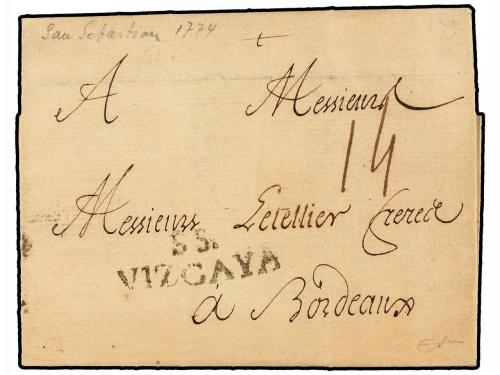 San Sebastian 1774
A Messieurs
14
Messieurs Letellier freres
S S.
VIZCAYA
a Bordeaux